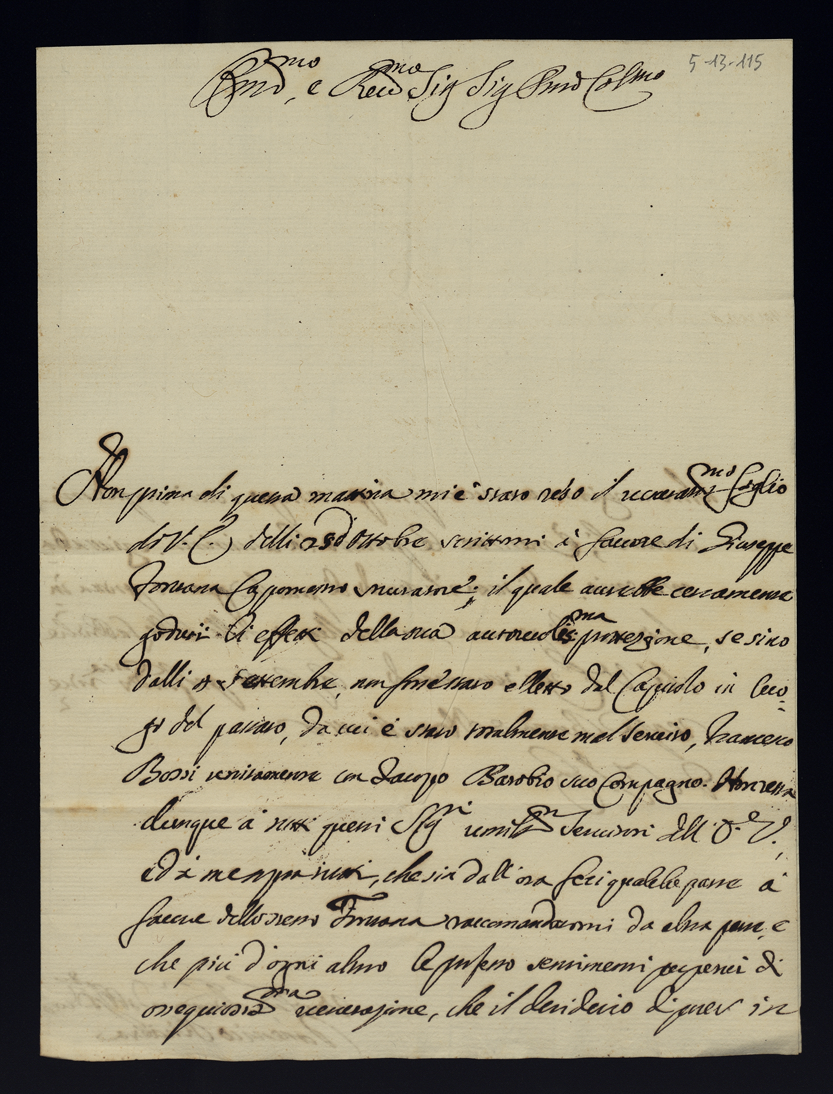 5-13-115
Em̃mo, e Reũmo Sig Sig Prõn Colmo
Non prima di questa mattina mi è stato reso il veneratmo foglio
di V. E. delli 28 d Ottobre scrittomi à favore di Giuseppe
Fontana Capomastro muratore; il quale averebbe certamente
goduti li effetti della sua autorevolisma protezzione, se sino
dalli 9 Settembre, non fosse stato elletto dal Capitolo in luo=
go del passato, da cui è stato totalmente mal servito, Francesco
Bossi unitamente con Jacopo Barobio suo Compagno. Non resta
dunque à tutti questi Sigri umilmi Servitori dell' E. V.,
ed à me più di tutti, che sia dall' ora feci qualche parte à
favore dello stesso Fontana raccomandatomi da altra parte, e
che più d'ogni altro le professo sentimenti di
ossequiosisma venerazione, che il desiderio di poter in